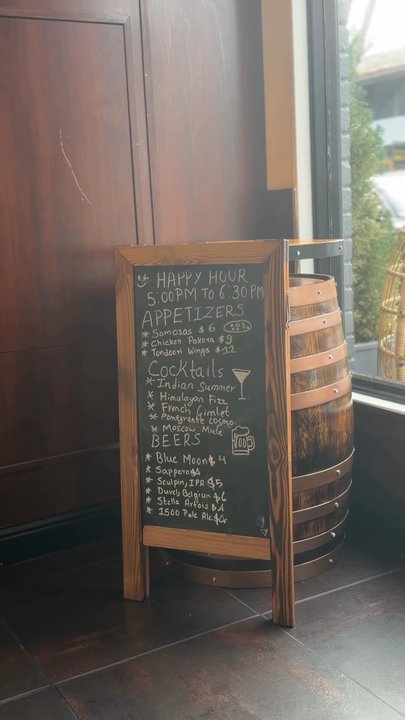 HAPPY HOUR
5:00PM TO 6:30PM
APPETIZERS
* Samosas $6
* Chicken Pakora $9
* Tandoori Wings $12
Cocktails
* Indian Summer
* Himalayan Fizz
* French Gimlet
* Pomegrante Cosmo.
* Moscow Mule
BEERS
* Blue Moon $4
* Sapporo $4
* Sculpin, IPA $5
* Duvel, Belgium $6
* Stella Artois $4
* 1500 Pale Ale $4